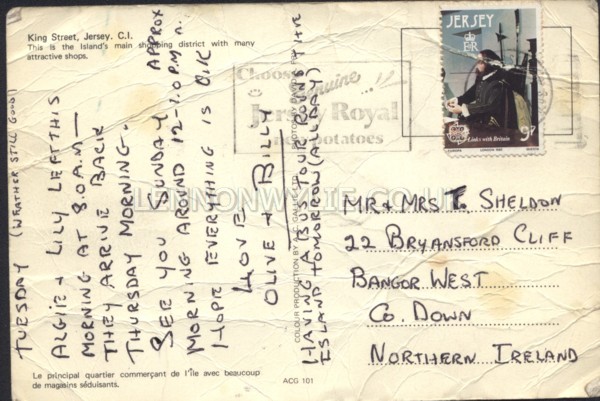 King Street, Jersey. C.I.
This is the Island's main shopping district with many
attractive shops.
TUESDAY (WEATHER STILL GOOD!)
ALGIE + LILY LEFT THIS
MORNING AT 8.0.A.M—
THEY ARRIVE BACK
THURSDAY MORNING.
SEE YOU SUNDAY APPROX
MORNING AROUND 12-1.0.P.M.
HOPE EVERYTHING IS O.K
LOVE
OLIVE + BILLY
HAVING A BUS TOUR ROUND THE
ISLAND TOMORROW (ALL DAY)
Le principal quartier commerçant de l'île avec beaucoup
de magasins séduisants.
COLOUR PRODUCTION BY
ACG 101
Choose
genuine...!!
Jersey Royal
new potatoes
JERSEY
Links with Britain
MR & MRS T. SHELDON
22 BRYANSFORD CLIFF
BANGOR WEST
Co. DOWN
NORTHERN IRELAND
LENNONWYLIE.CO.UK